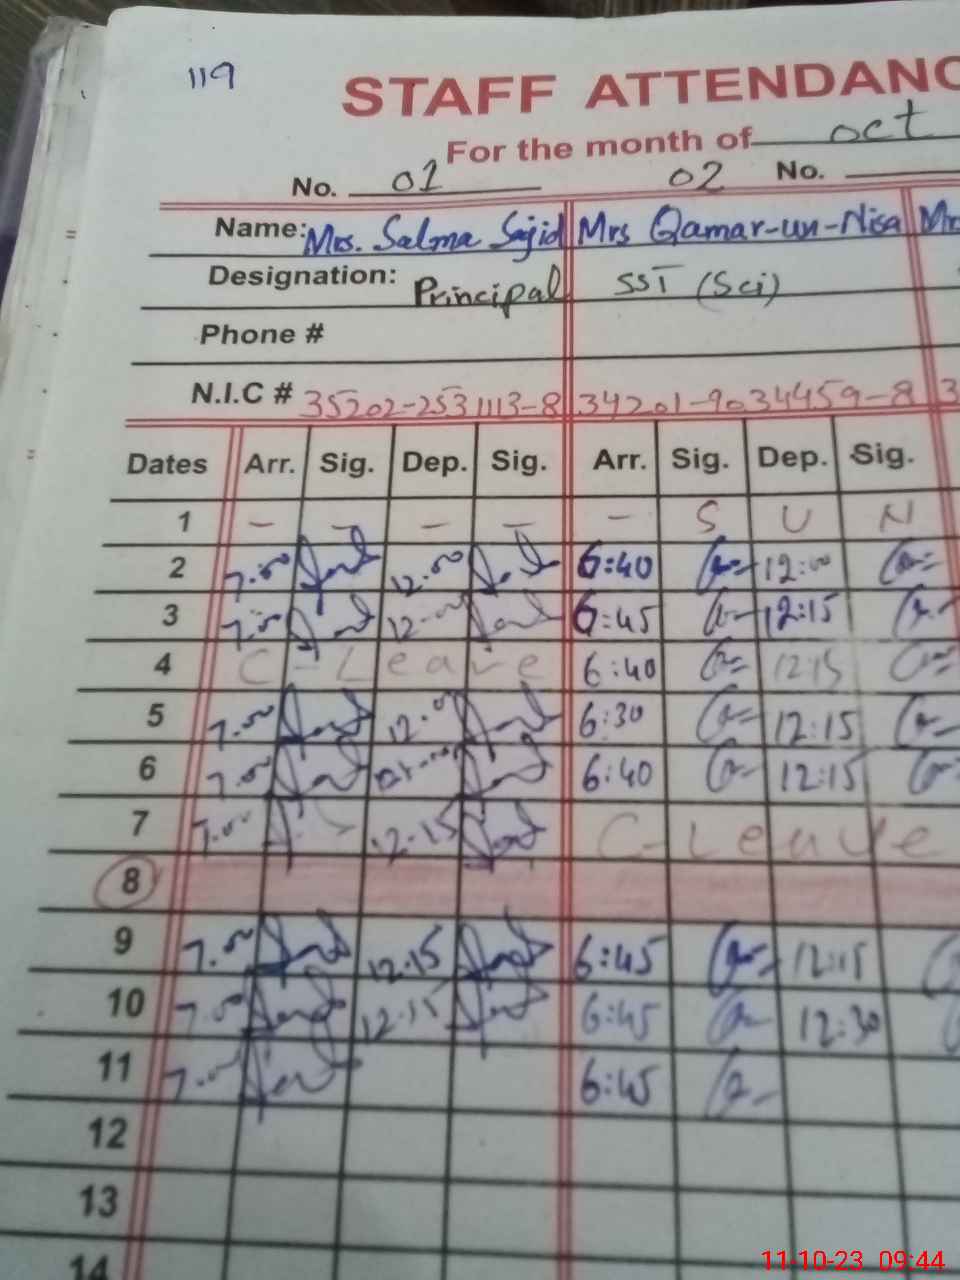 119
STAFF ATTENDANC
For the month of oct
No. 01 02 No.
Name: Mrs. Salma Sajid Mrs Qamar-un-Nisa
Designation: Principal SST (Sci)
Phone #
N.I.C # 35202-2531113-8 34201-9034459-8 3
Dates Arr. Sig. Dep. Sig. Arr. Sig. Dep. Sig.
1 - - - - - S U N
2 7.00 12.00 6:40 12:00
3 7.00 12-00 6:45 12:15
4 C-Leave 6:40 12:15
5 7.00 12.0 6:30 12:15
6 7.00 6:40 12:15
7 7.00 12.15 C-Leave
8
9 7.00 12.15 6:45 12:15
10 7.00 12.15 6:45 12:30
11 7.00 6:45
12
13
14
11-10-23 09:44